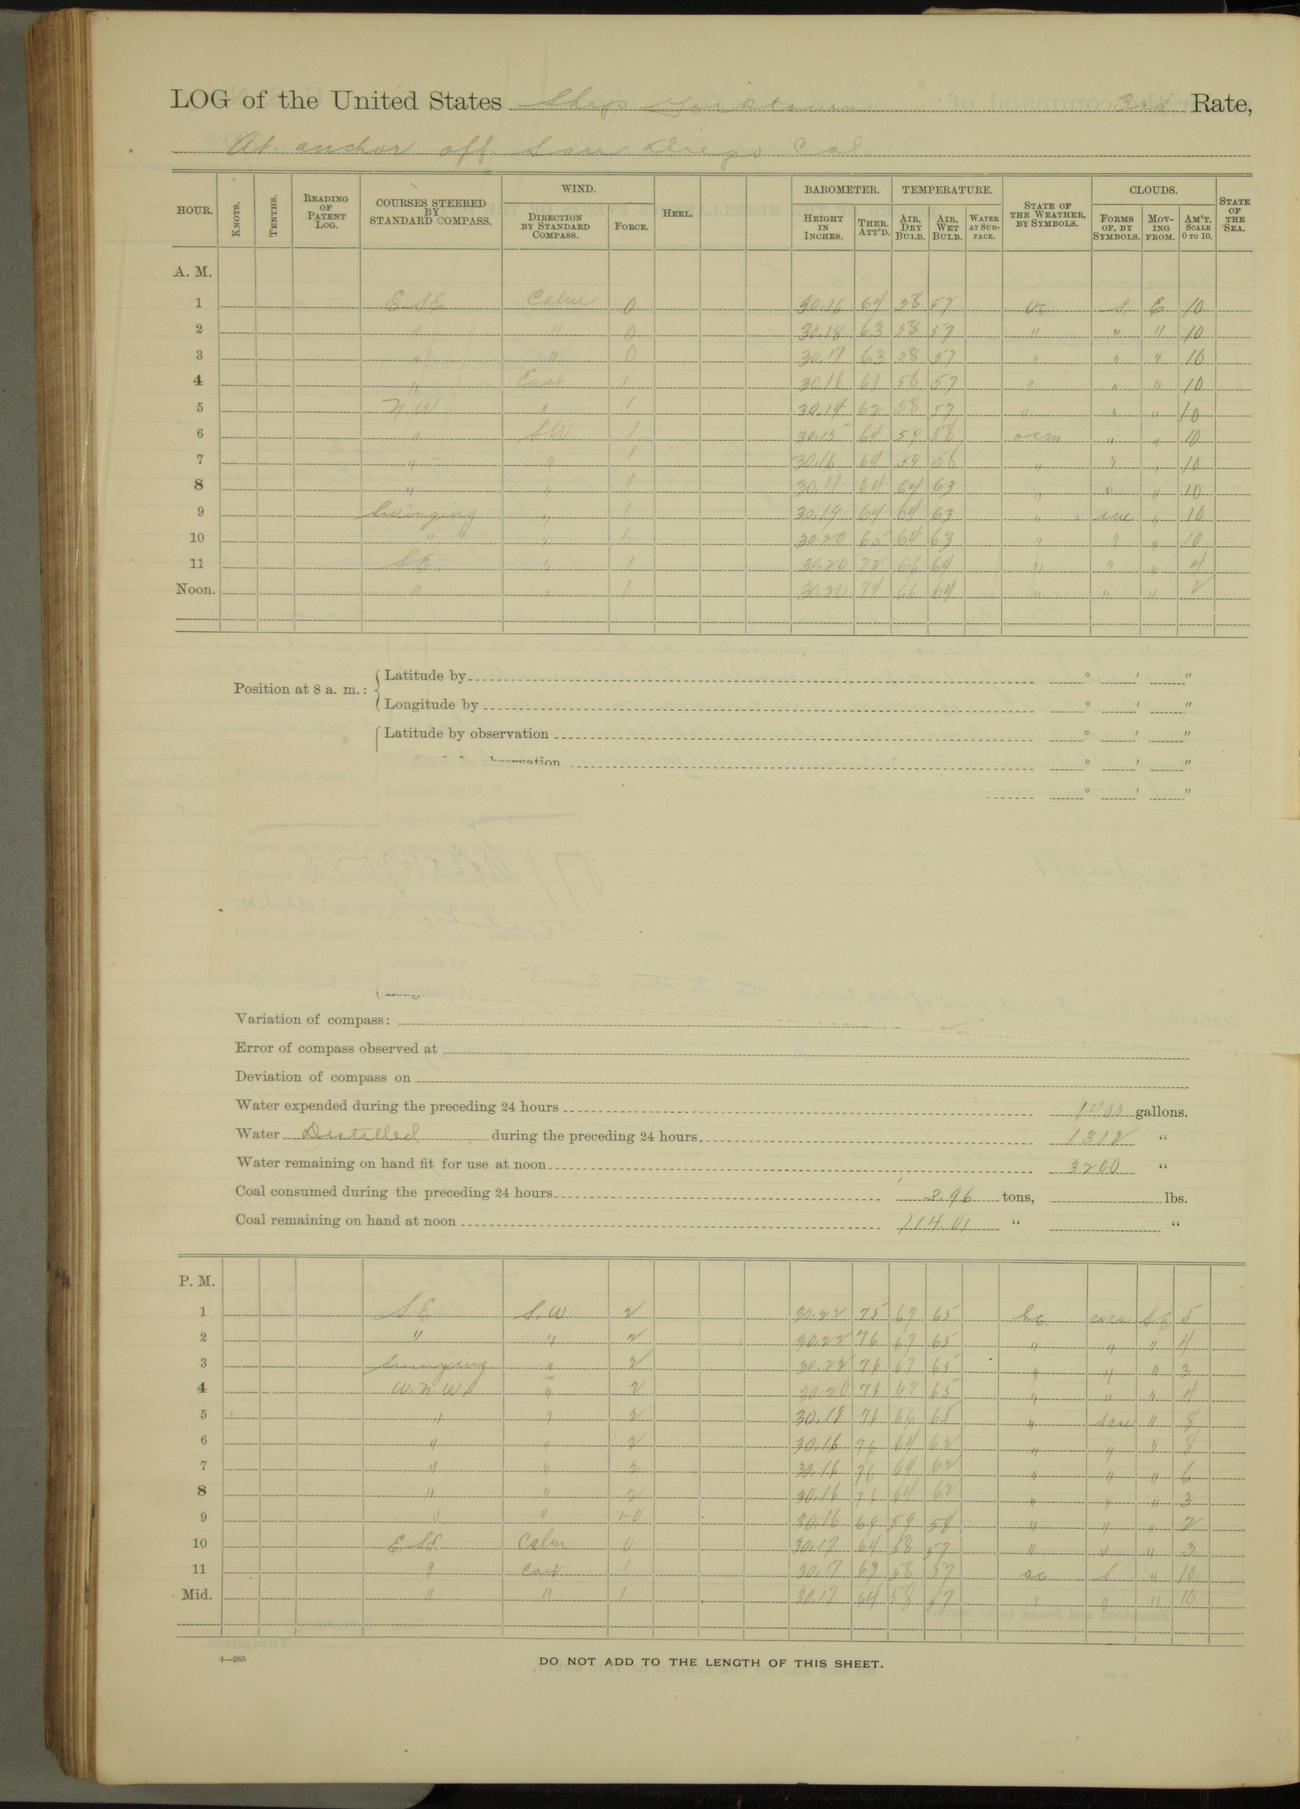 LOG of the United States Ships Yorktown 3rd Rate,
At anchor off San Diego Cal.
HOUR. KNOTS. TENTHS. READING OF PATENT LOG. COURSES STEERED BY STANDARD COMPASS. WIND. DIRECTION BY STANDARD COMPASS. FORCE. HEEL. BAROMETER. HEIGHT IN INCHES. THER. ATT'D. TEMPERATURE. AIR, DRY BULB. AIR, WET BULB. WATER AT SURFACE. STATE OF THE WEATHER, BY SYMBOLS. CLOUDS. FORMS OF, BY SYMBOLS. MOVING FROM. AM'T. SCALE 0 TO 10. STATE OF THE SEA.
A. M.
1 E SE Calm 0 30.16 64 58 57 S E 10
2 " " 0 30.18 63 58 57 " " " 10
3 " " 0 30.17 63 58 57 " " " 10
4 " East 1 30.16 61 58 57 " " " 10
5 N W " 1 30.14 62 58 57 " " " 10
6 " SW 1 30.15 64 59 58 ocm " " 10
7 " " 1 30.16 64 59 58 " " " 10
8 " " 1 30.17 64 64 63 " " " 10
9 Swinging " 1 30.19 64 64 63 " scu " 10
10 " " 1 30.20 65 64 63 " " " 10
11 SE " 1 30.20 72 66 64 " " " 4
Noon. " " 1 30.20 74 66 64 " " " 2
Position at 8 a. m.: Latitude by ° ' "
Longitude by ° ' "
Latitude by observation ° ' "
° ' "
° ' "
Variation of compass:
Error of compass observed at
Deviation of compass on
Water expended during the preceding 24 hours 1400 gallons.
Water Distilled during the preceding 24 hours 1312 "
Water remaining on hand fit for use at noon 3200 "
Coal consumed during the preceding 24 hours 3.96 tons, lbs.
Coal remaining on hand at noon 114.01 " "
P. M.
1 S E S.W 2 30.22 75 67 65 bc S E 5
2 " " 2 30.22 76 67 65 " " " 4
3 Swinging " 2 30.22 76 67 65 " " " 3
4 W.N.W " 2 30.20 76 67 65 " " " 4
5 " " 2 30.18 76 66 65 " scu " 8
6 " " 2 30.16 76 64 62 " " " 8
7 " " 2 30.16 76 64 62 " " " 6
8 " " 2 30.16 76 64 62 " " " 3
9 " " 1-0 30.16 64 59 58 " " " 2
10 E SE Calm 0 30.17 64 58 57 " " " 3
11 " East 1 30.17 63 58 57 oc S " 10
Mid. " " 1 30.17 64 58 57 " " " 10
4—265
DO NOT ADD TO THE LENGTH OF THIS SHEET.